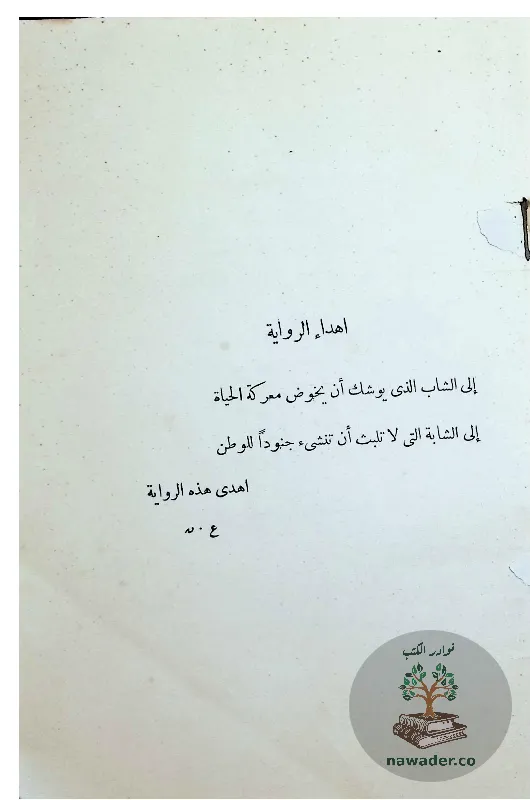 اهداء الرواية
إلى الشاب الذى يوشك أن يخوض معركة الحياة
إلى الشابة التى لا تلبث أن تنشىء جنوداً للوطن
اهدى هذه الرواية
ع . ن
نوادر الكتب
nawader.co